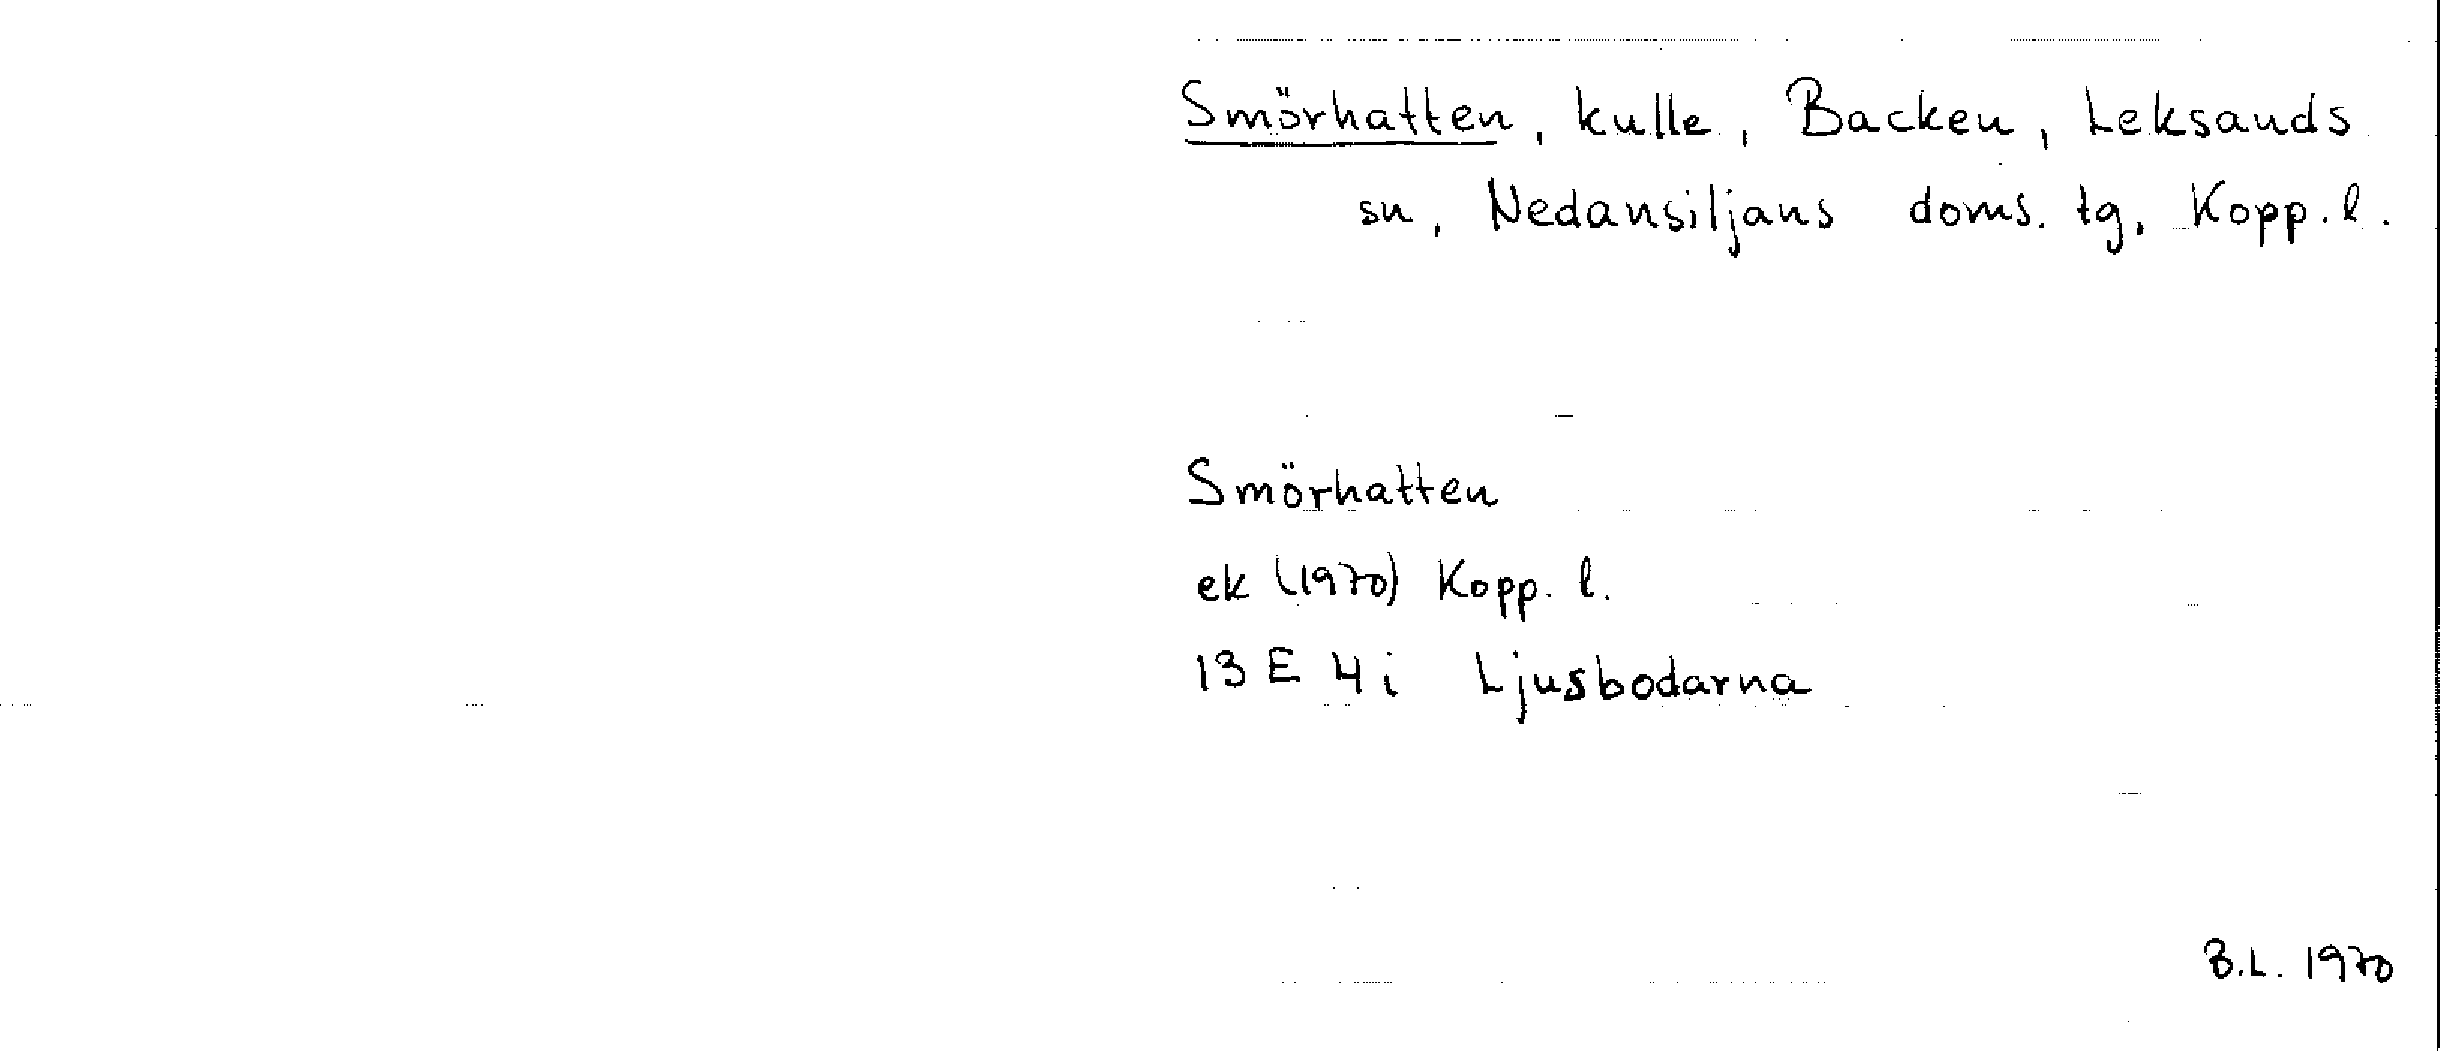 Smörhatten, kulle, Backen, Leksands
sn, Nedansiljans doms. tg, Kopp. l.
Smörhatten
ek (1970) Kopp. l.
13 E 4 i Ljusbodarna
B.L. 1970